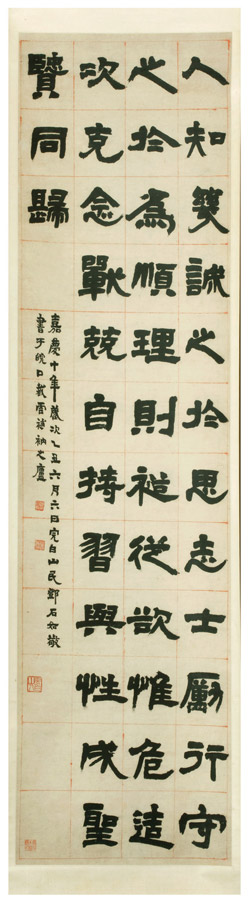 人知幾誠之於思志士勵行守
之於為順理則裕從欲惟危造
次克念戰兢自持習與性成聖
賢同歸
嘉慶十年歲次乙丑六月六日完白山民鄧石如敬
書于皖口衲之廬